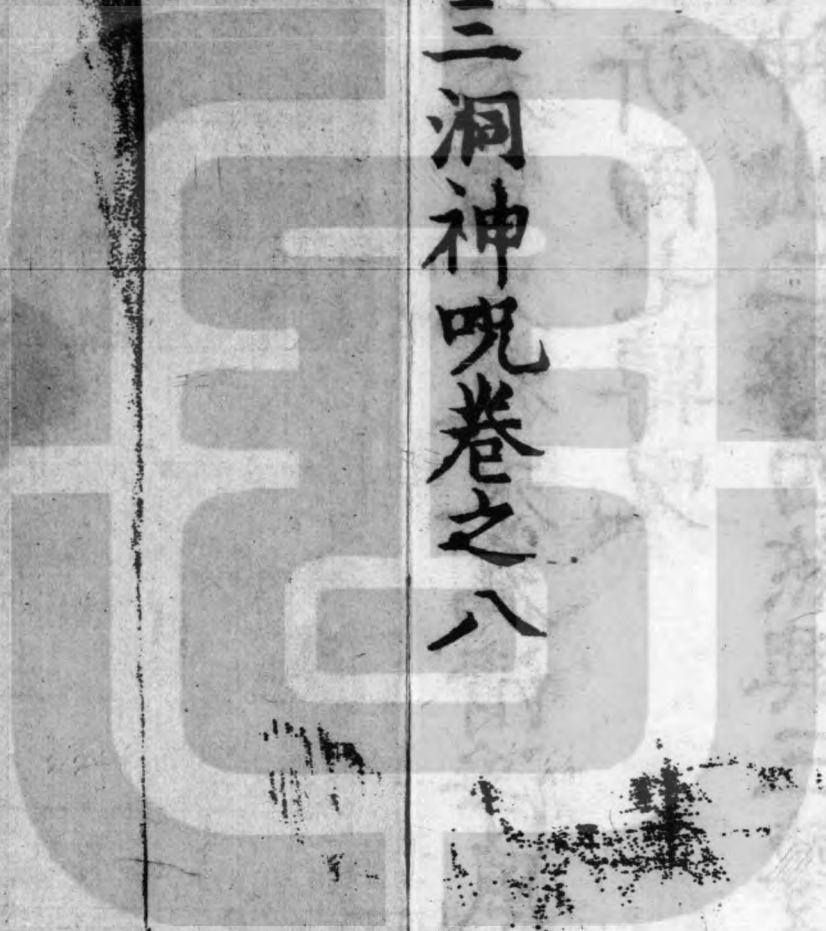 三洞神呪卷之八